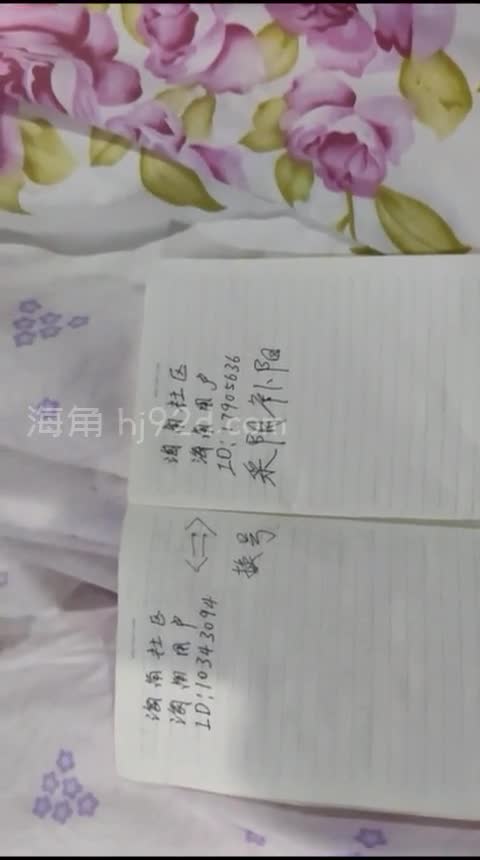 海角社区
海角用户
ID:10343094
<二>
换号
海角社区
海角用户
ID:17905636
采阴补阳
海角 hj92d.com